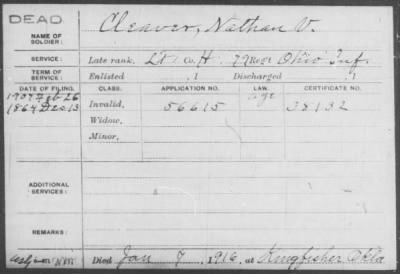 DEAD
NAME OF SOLDIER: Cleaver, Nathan V.
SERVICE: Late rank, Lt Co. H. 79 Regt Ohio Inf.
TERM OF SERVICE: Enlisted , 1 Discharged , 1
DATE OF FILING. CLASS. APPLICATION NO. LAW. CERTIFICATE NO.
1907 Feb 26 Age
1864 Dec 13 Invalid, 56615 38132
Widow,
Minor,
ADDITIONAL SERVICES:
REMARKS:
Died Jan 7, 1916, at Kingfisher Okla